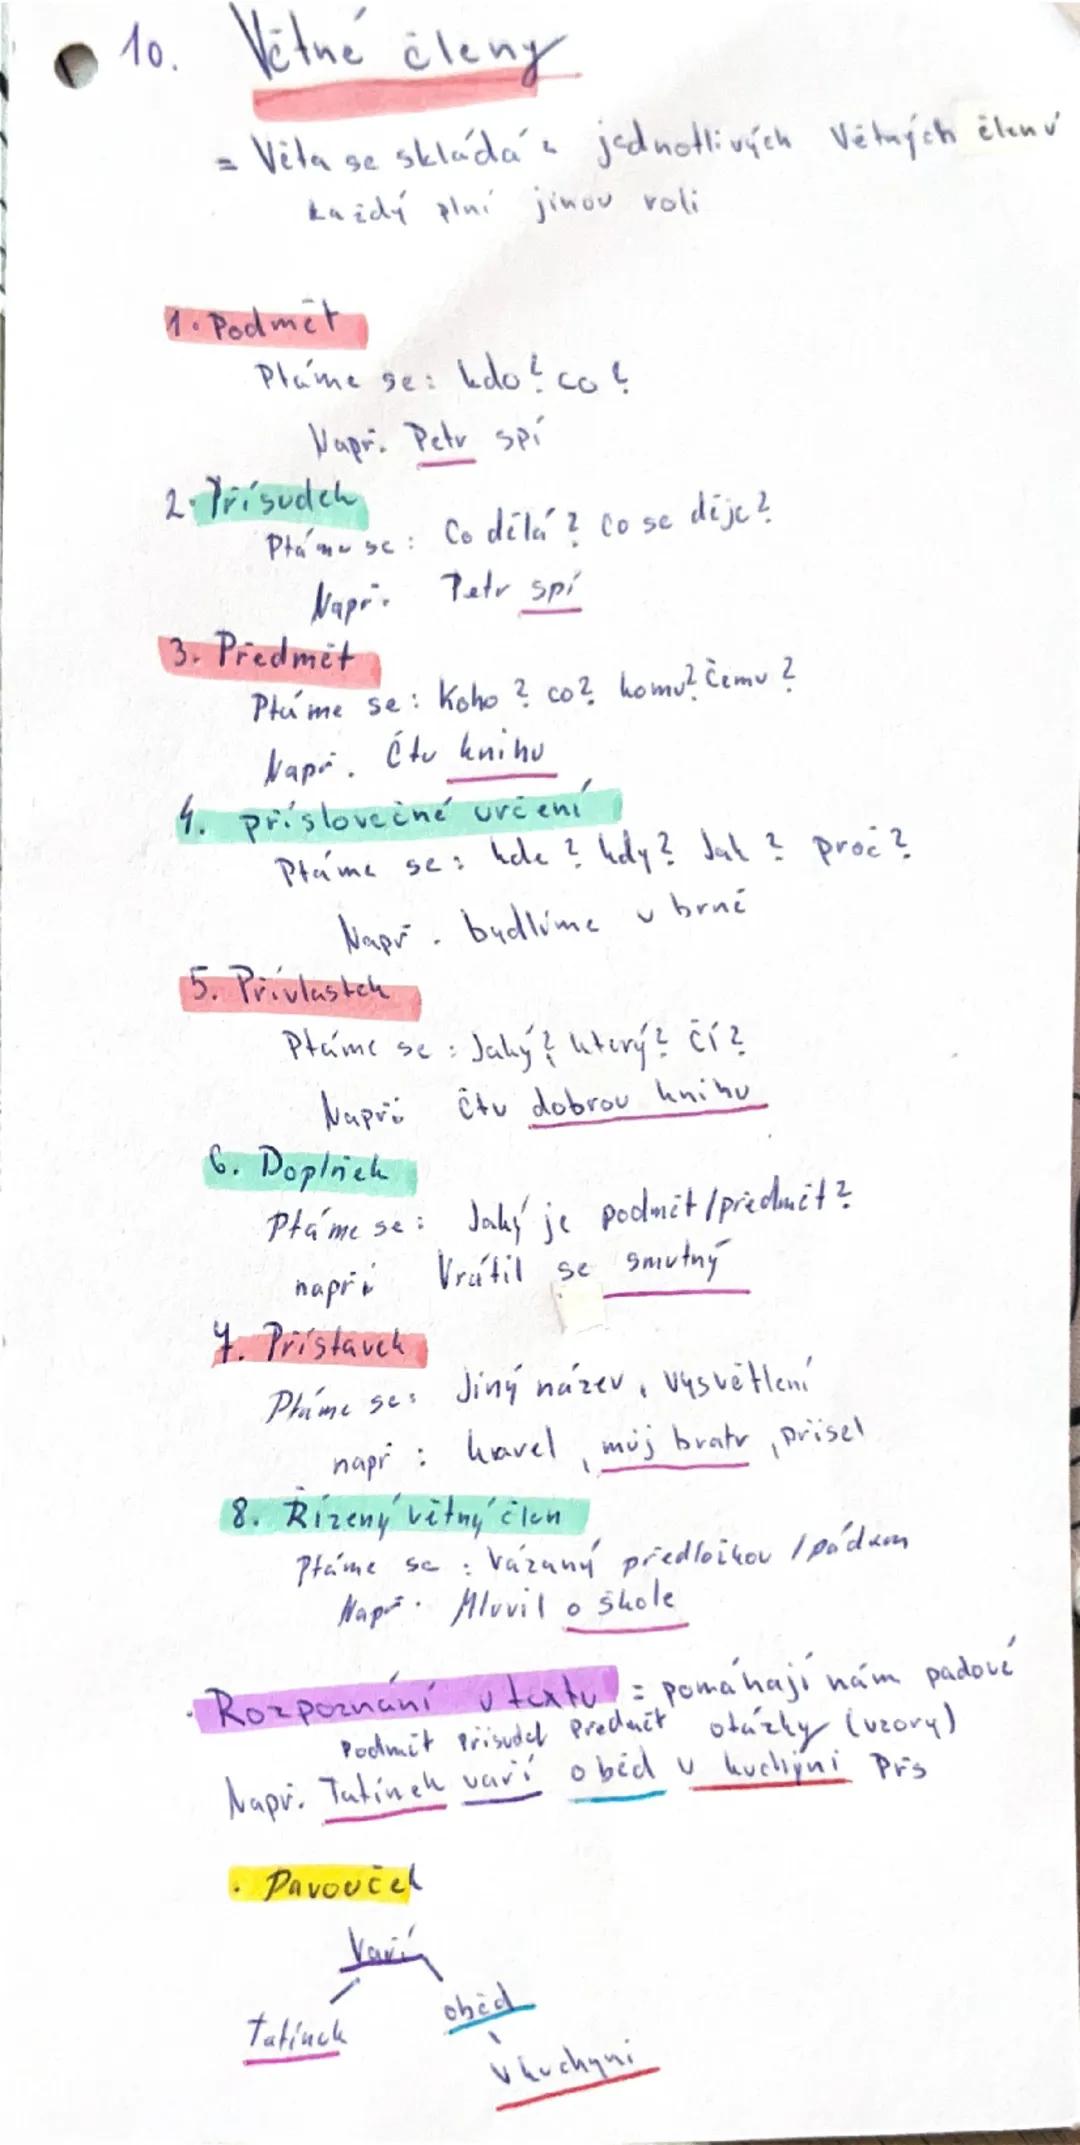 10. Větné členy
= Věta se skládá z jednotlivých větných členů
každý plní jinou roli
1. Podmět
Ptáme se: kdo? co?
Např. Petr spí
2. Přísudek
Ptáme se: Co dělá? Co se děje?
Např. Petr spí
3. Předmět
Ptáme se: Koho? co? komu? čemu?
Např. Čtu knihu
4. příslovečné určení
Ptáme se: kde? kdy? Jak? proč?
Např. bydlíme v brně
5. Přívlastek
Ptáme se: Jaký? který? čí?
Např: čtu dobrou knihu
6. Doplněk
Ptáme se: Jaký je podmět/předmět?
např: Vrátil se smutný
7. Přístavek
Ptáme se: Jiný název, vysvětlení
např: karel, můj bratr, přišel
8. Řízený větný člen
Ptáme se: Vázaný předložkou / pádem
Např. Mluvil o škole
· Rozpoznání v textu = pomáhají nám padové
Podmět Přísudek Předmět otázky (vzory)
Např. Tatínek vaří oběd v kuchyni Prs
· Pavouček
Vaří
Tatínek oběd
v kuchyni